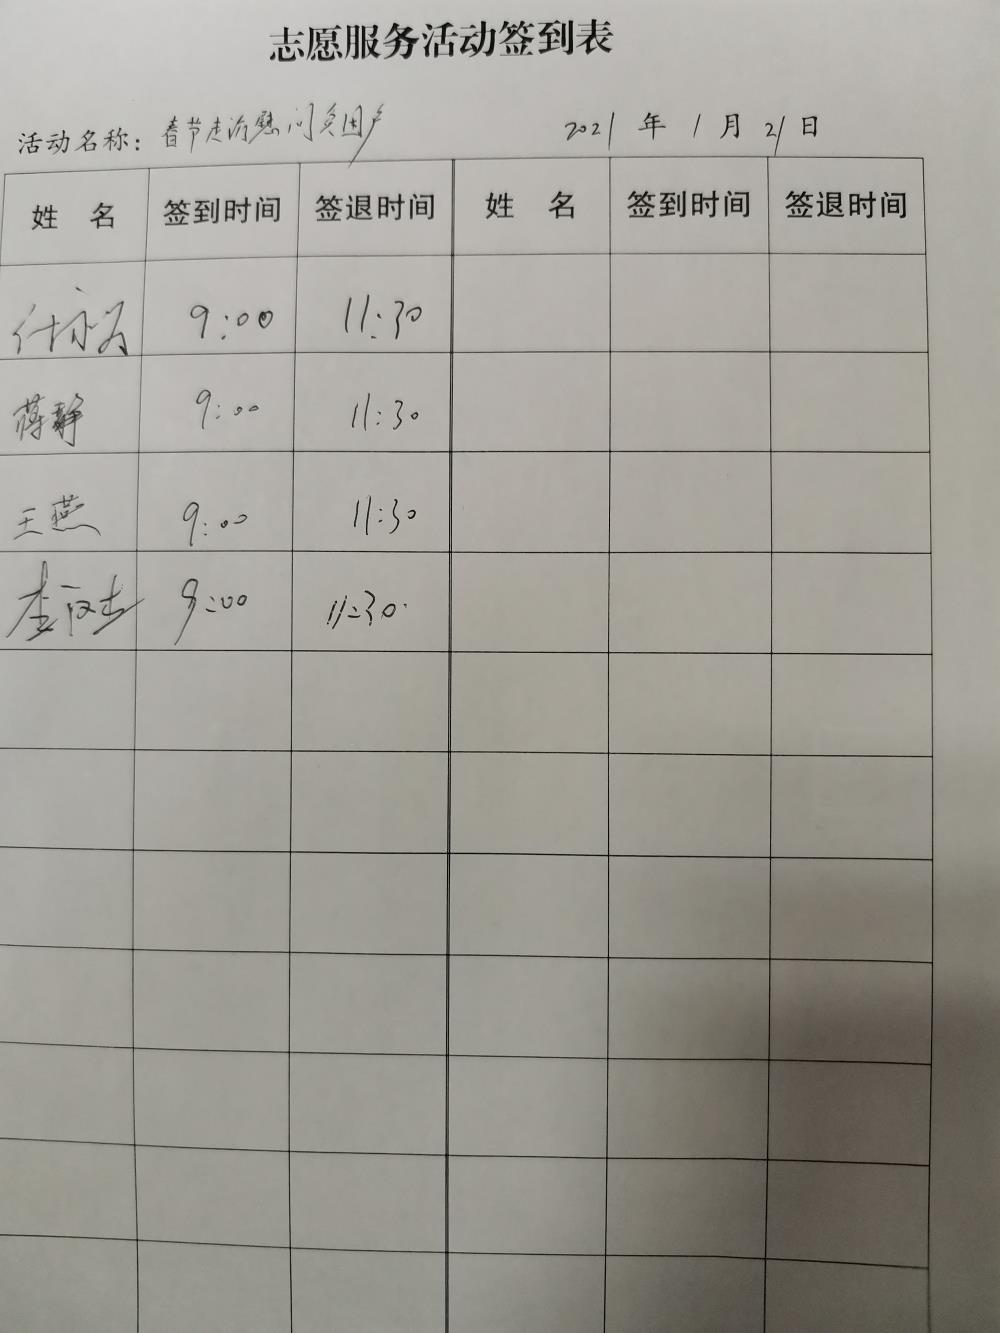 志愿服务活动签到表
活动名称：春节走访慰问贫困户 2021 年 1 月 21 日
姓 名 签到时间 签退时间 姓 名 签到时间 签退时间
9:00 11:30
蒋静 9:00 11:30
王燕 9:00 11:30
李 9:00 11:30